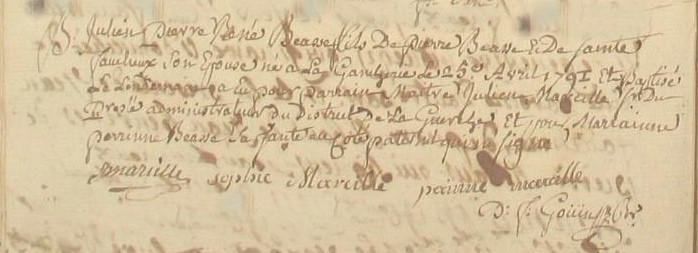 B. Julien Pierre René Beasse fils De pierre Beasse Et De jeanne
Saulieux Son Epouse né a La Gauberie le 25e Avril 1791 Et baptisé
Le Lendemain a eu pour parrain Maitre Julien Mareille Sr Du
Presé administrateur Du District De La Guerche Et pour Marrainne
perrinne Beasse Sa tante au Coté paternel qui ne Signe
Mareille sophie Mareille perinne mareille
D. f. Goüin